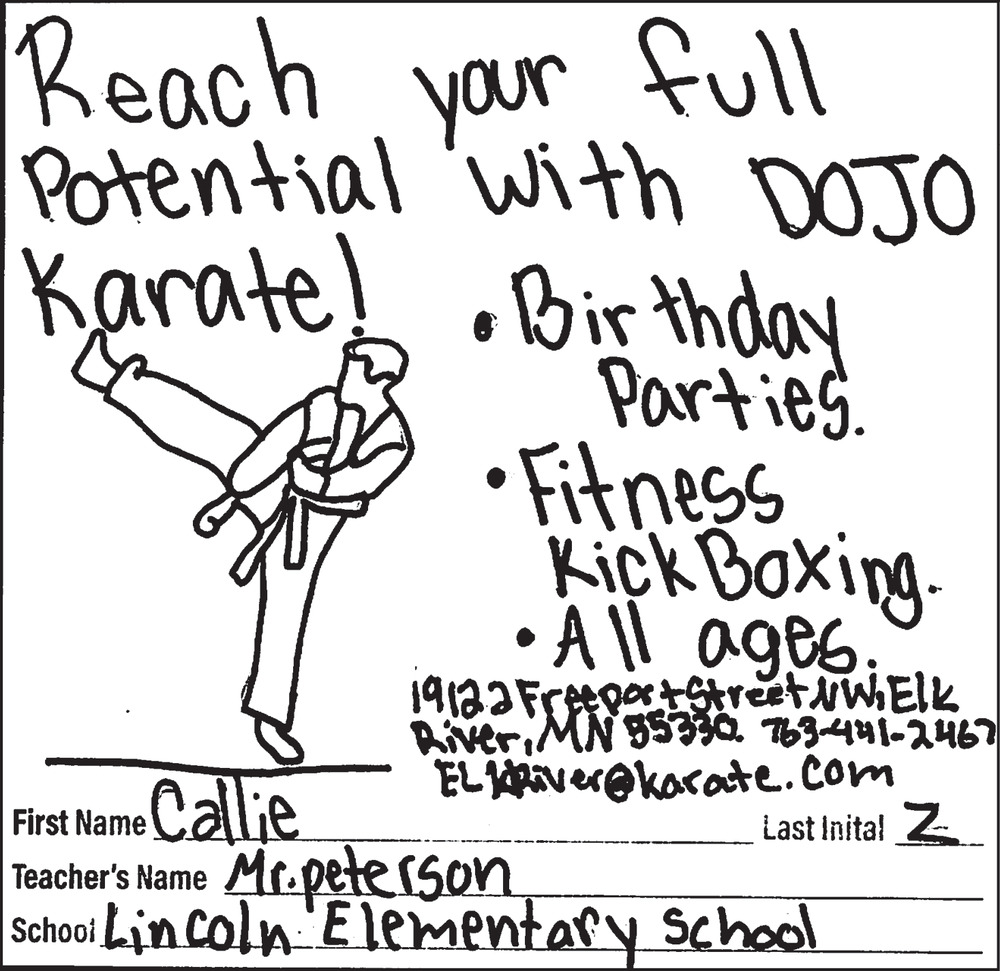 Reach your full
Potential with DOJO
Karate!
• Birthday
Parties.
• Fitness
Kick Boxing.
• All ages.
19122 Freeport Street NW, Elk
River, MN 55330. 763-441-2467
ELKRiver@karate.com
First Name Callie Last Inital Z
Teacher's Name Mr. peterson
School Lincoln Elementary School